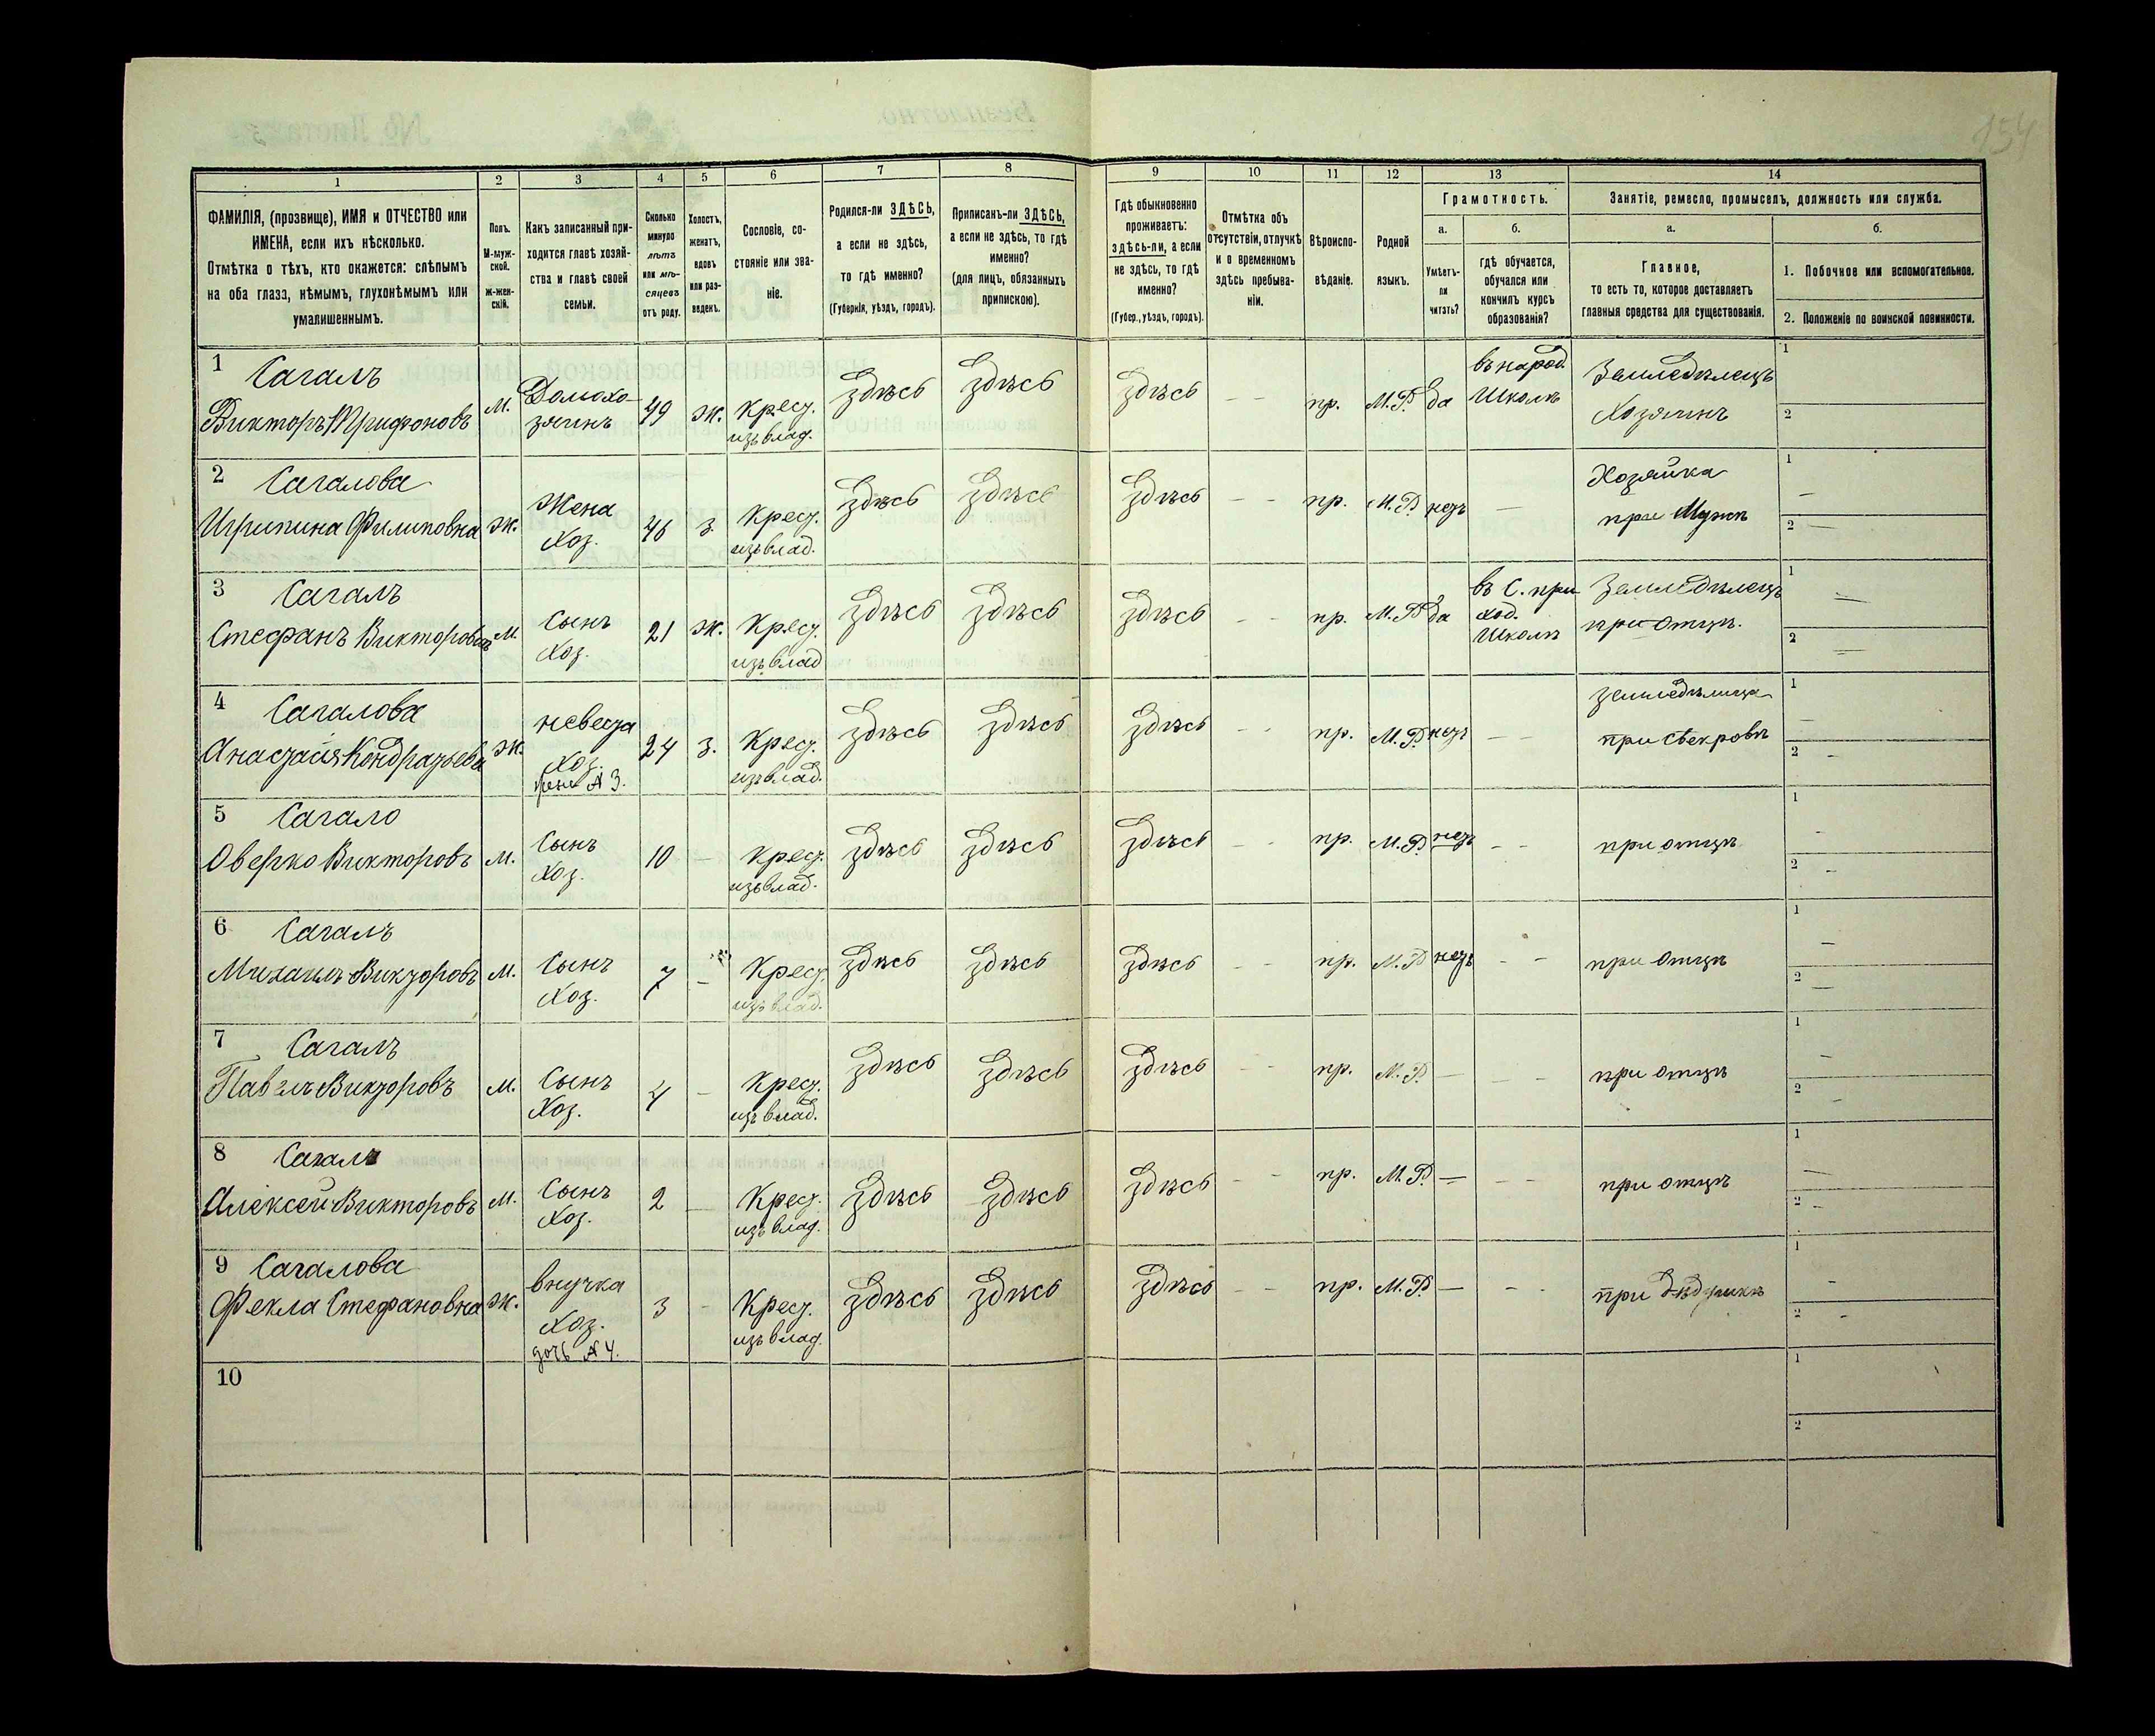 154
1 2 3 4 5 6 7 8 9 10 11 12 13 14
ФАМИЛІЯ, (прозвище), ИМЯ и ОТЧЕСТВО или
ИМЕНА, если ихъ нѣсколько.
Отмѣтка о тѣхъ, кто окажется: слѣпымъ
на оба глаза, нѣмымъ, глухонѣмымъ или
умалишеннымъ.
Полъ.
М-муж-
ской.
Ж-жен-
скій.
Какъ записанный при-
ходится главѣ хозяй-
ства и главѣ своей
семьи.
Сколько
минуло
лѣтъ
или мѣ-
сяцевъ
отъ роду.
Холостъ,
женатъ,
вдовъ
или раз-
веденъ.
Сословіе, со-
стояніе или зва-
ніе.
Родился-ли ЗДѢСЬ,
а если не здѣсь,
то гдѣ именно?
(Губернія, уѣздъ, городъ).
Приписанъ-ли ЗДѢСЬ,
а если не здѣсь, то гдѣ
именно?
(для лицъ, обязанныхъ
припискою).
Гдѣ обыкновенно
проживаетъ:
здѣсь-ли, а если
не здѣсь, то гдѣ
именно?
(Губер., уѣздъ, городъ).
Отмѣтка объ
отсутствіи, отлучкѣ
и о временномъ
здѣсь пребыва-
ніи.
Вѣроиспо-
вѣданіе.
Родной
языкъ.
Грамотность.
а.
Умѣетъ-
ли
читать?
б.
гдѣ обучается,
обучался или
кончилъ курсъ
образованія?
Занятіе, ремесло, промыселъ, должность или служба.
а.
Главное,
то есть то, которое доставляетъ
главныя средства для существованія.
б.
1. Побочное или вспомогательное.
2. Положеніе по воинской повинности.
1 Сагалъ
Викторъ Трифоновъ
м.
Домохо-
зяинъ
49
ж.
Крест.
изъ влад.
Здѣсь
Здѣсь
Здѣсь
- -
пр.
М.Р.
да
въ народ.
Школѣ
Земледѣлецъ
Хозяинъ
1
2
2 Сагалова
Игрипина Филиповна
ж.
Жена
Хоз.
46
з.
Крест.
изъ влад.
Здѣсь
Здѣсь
Здѣсь
- -
пр.
М.Р.
нетъ
—
Хозяйка
при Мужѣ
1 —
2 —
3 Сагалъ
Стефанъ Викторовъ
м.
Сынъ
Хоз.
21
ж.
Крест.
изъ влад
Здѣсь
Здѣсь
Здѣсь
- -
пр.
М.Р.
да
въ С. при-
ход.
Школѣ
Земледѣлецъ
при отцѣ.
1 —
2 —
4 Сагалова
Анастасія Кондратьева
ж.
невеста
Хоз.
жена № 3.
24
з.
Крест.
изъ влад.
Здѣсь
Здѣсь
Здѣсь
- -
пр.
М.Р.
нетъ
- -
земледѣлица
при свекровѣ
1 —
2 —
5 Сагало
Оверко Викторовъ
м.
Сынъ
Хоз.
10
-
Крест.
изъ влад.
Здѣсь
Здѣсь
Здѣсь
- -
пр.
М.Р.
нетъ
- -
при отцѣ
1 -
2 -
6 Сагалъ
Михаилъ Викторовъ
м.
Сынъ
Хоз.
7
-
Крест.
изъ влад.
Здѣсь
Здѣсь
Здѣсь
- -
пр.
М.Р.
нетъ
- -
при отцѣ
1 —
2 —
7 Сагалъ
Павелъ Викторовъ
м.
Сынъ
Хоз.
4
-
Крест.
изъ влад.
Здѣсь
Здѣсь
Здѣсь
- -
пр.
М.Р.
—
- -
при отцѣ
1 -
2 -
8 Сагалъ
Алексей Викторовъ
м.
Сынъ
Хоз.
2
-
Крест.
изъ влад.
Здѣсь
Здѣсь
Здѣсь
- -
пр.
М.Р.
—
- -
при отцѣ
1 —
2 -
9 Сагалова
Фекла Стефановна
ж.
внучка
Хоз.
дочь № 4.
3
-
Крест.
изъ влад.
Здѣсь
Здѣсь
Здѣсь
- -
пр.
М.Р.
—
- -
при Дѣдушкѣ
1 -
2 -
10
1
2